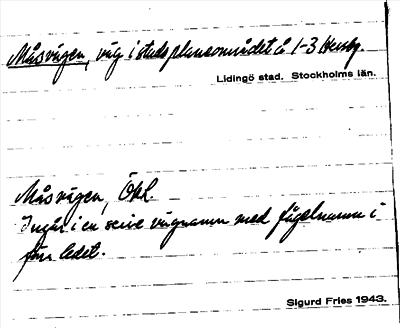 Måsvägen, väg i stadsplaneområdet å 1-3 Hersby.
Lidingö stad. Stockholms län.
Måsvägen, Ökl.
Ingår i en serie vägnamn med fågelnamn i
förra ledet.
Sigurd Fries 1943.